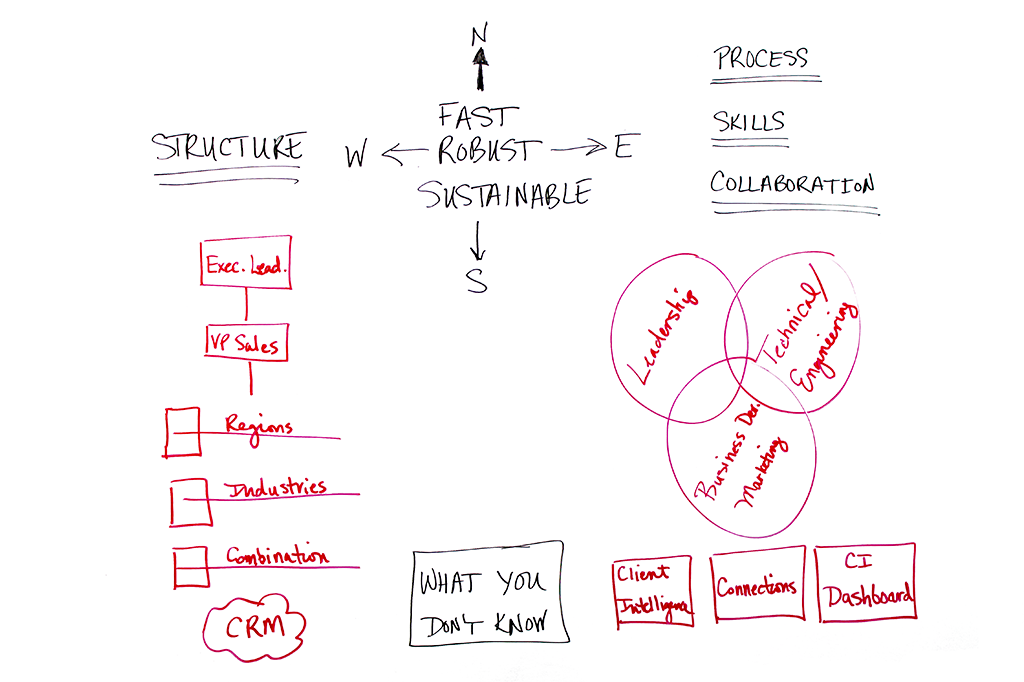 N
FAST
W ROBUST E
SUSTAINABLE
S
STRUCTURE
Exec. Lead.
VP Sales
Regions
Industries
Combination
CRM
PROCESS
SKILLS
COLLABORATION
Leadership
Technical/
Engineering
Business Dev.
Marketing
WHAT YOU
DON'T KNOW
Client
Intelligence
Connections
CI
Dashboard